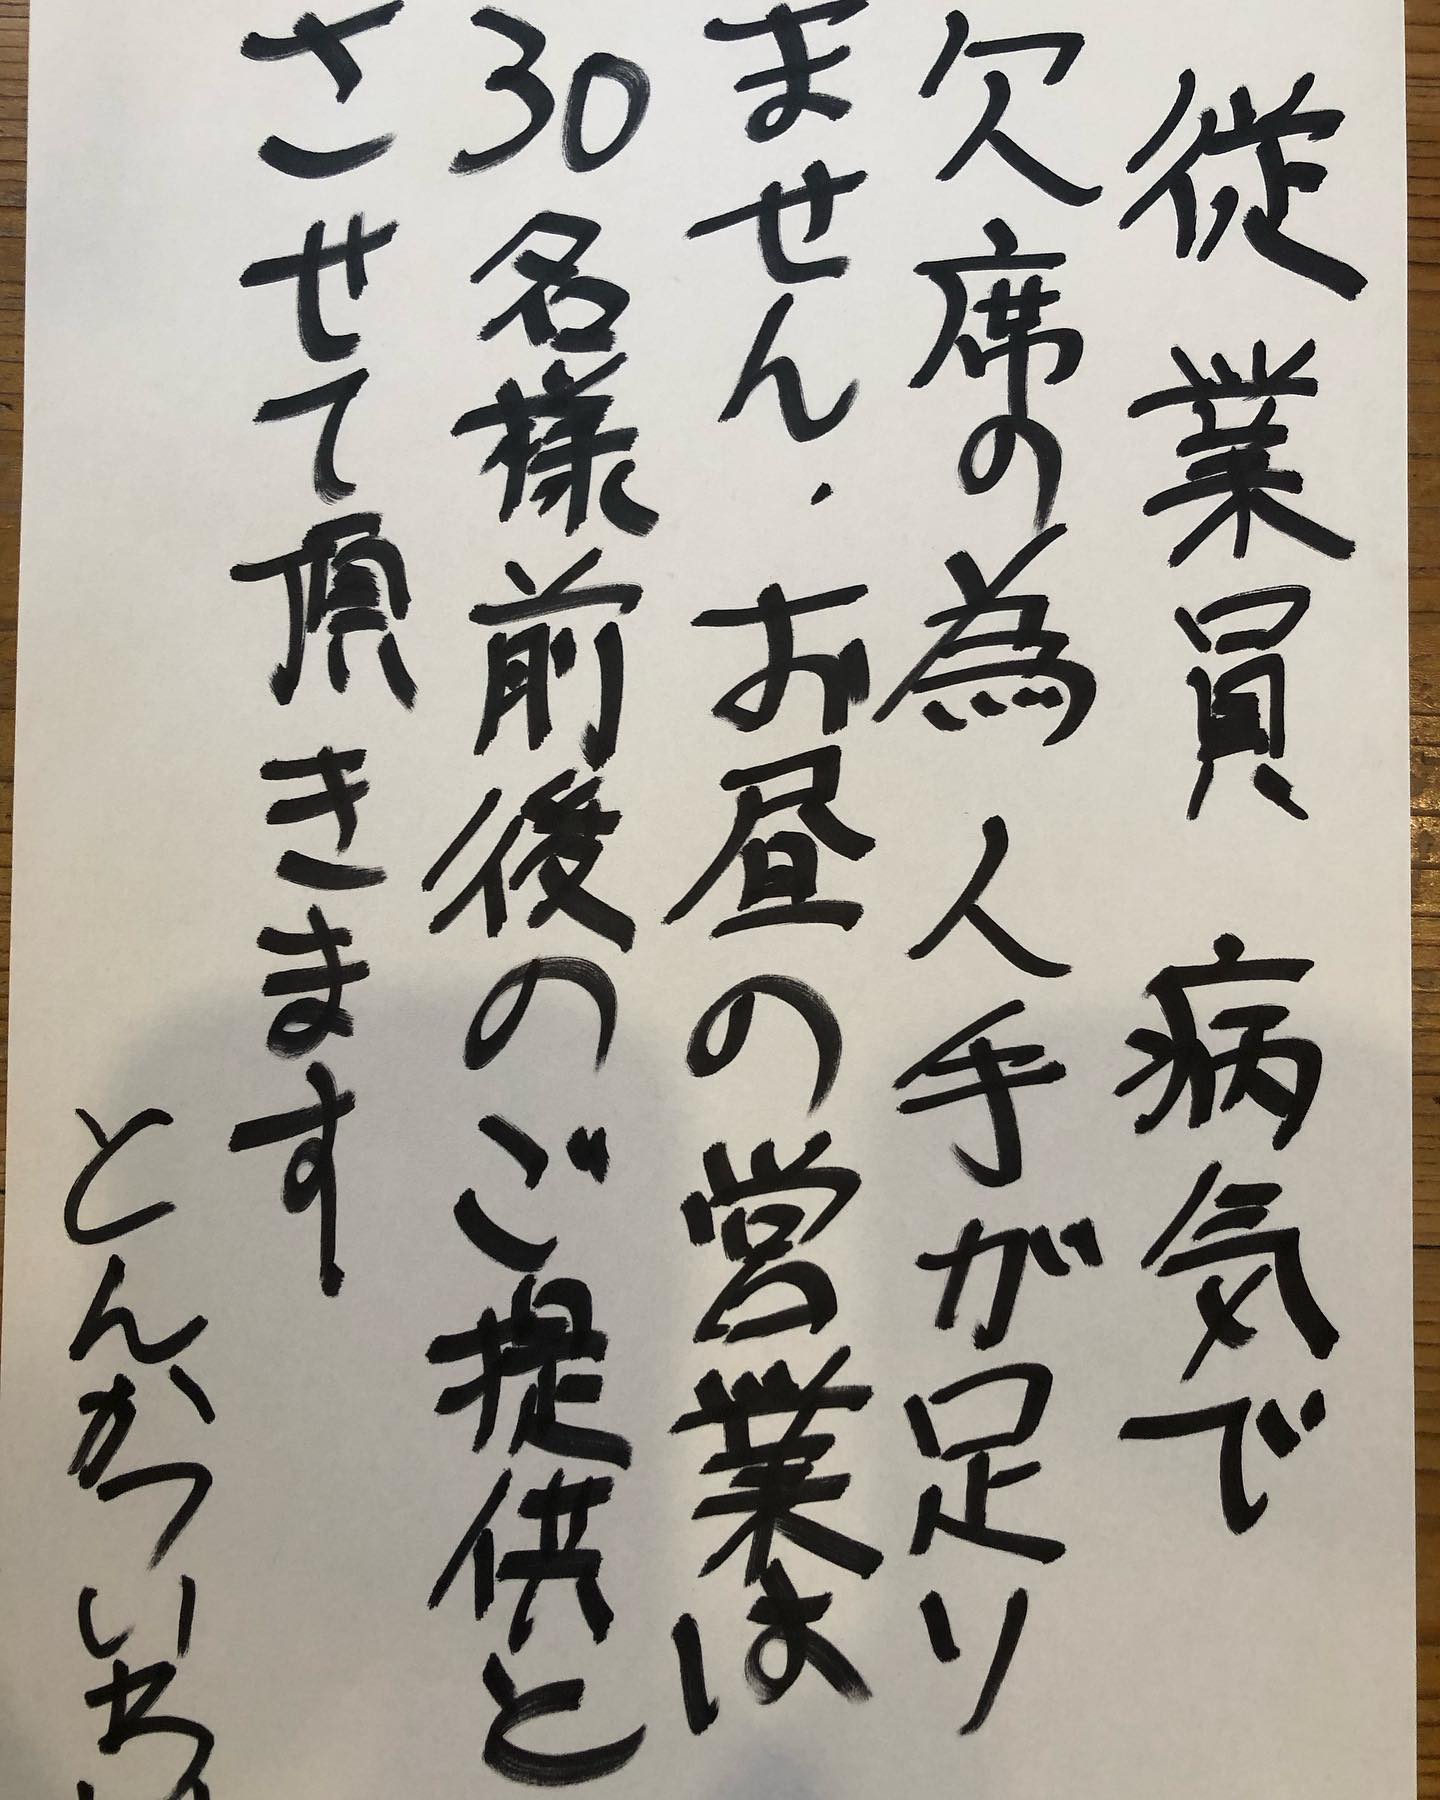 従業員 病気で
欠席の為人手が足り
ません.お昼の営業は
30名様前後のご提供と
させて頂きます
とんかついち